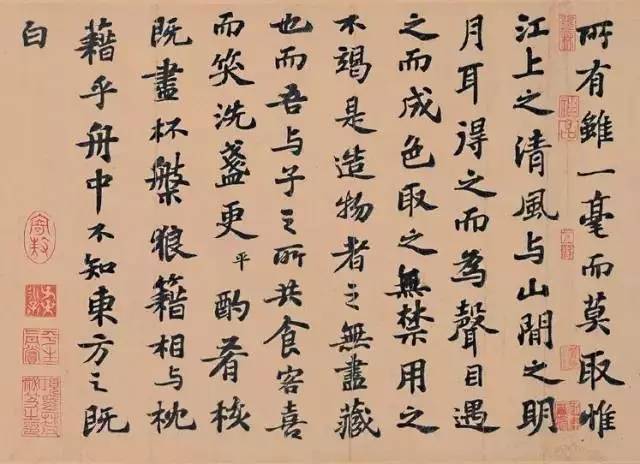 所有雖一毫而莫取惟
江上之清風与山間之明
月耳得之而為聲目遇
之而成色取之無禁用之
不竭是造物者之無盡藏
也而吾与子之所共食客喜
而笑洗盞更平酌肴核
既盡杯槃狼籍相与枕
藉乎舟中不知東方之既
白